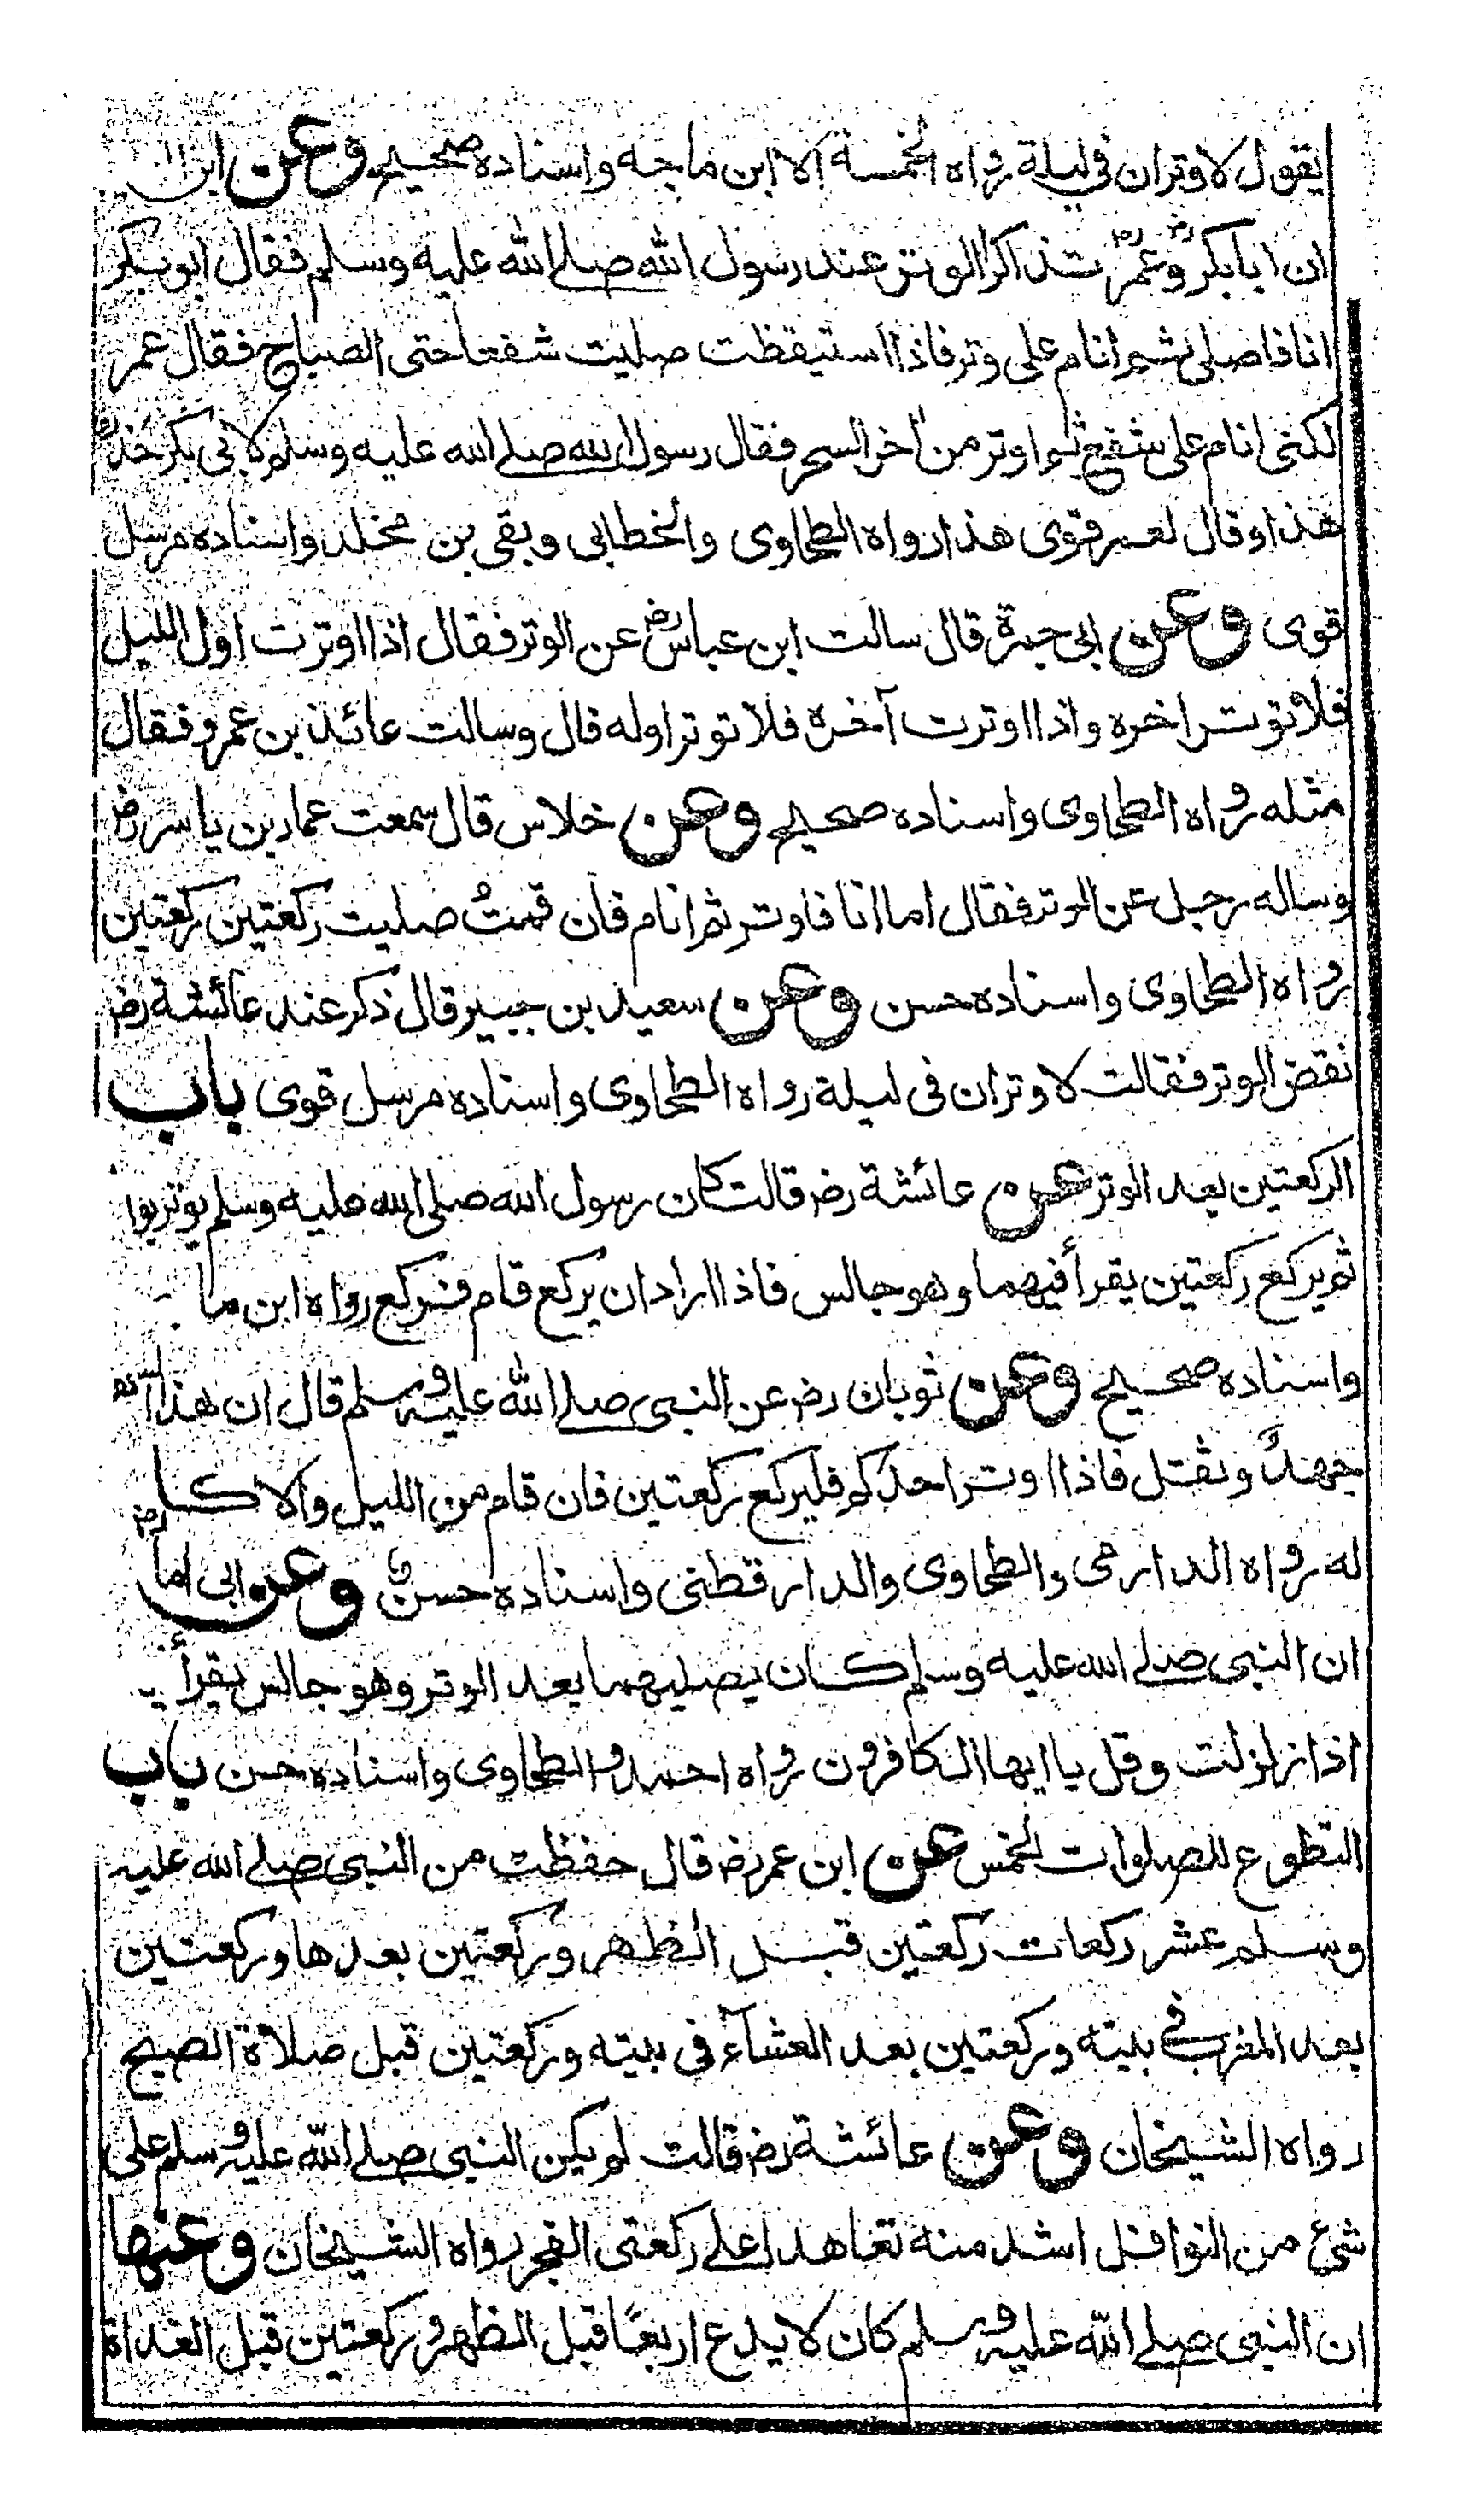 يقول لا وتران في ليلة رواه الخمسة الا ابن ماجة واسناده صحيح وعن ابن
ان ابا بكر رض وعمر رض تذاكرا الوتر عند رسول الله صلى الله عليه وسلم فقال ابو بكر
انا فاصلى ثم انام على وتر فاذا استيقظت صليت شفعا حتى الصباح فقال عمر
لكنى انام على شفع ثم اوتر من اخر السحر فقال رسول الله صلى الله عليه وسلم لابى بكر حذر
هذا وقال لعمر قوى هذا رواه الطحاوى والخطابى وبقى بن مخلد واسناده مرسل
قوى وعن ابى جمرة قال سالت ابن عباس رض عن الوتر فقال اذا اوترت اول الليل
فلا توتر اخره واذا اوترت آخره فلا توتر اوله قال وسالت عائذ بن عمرو فقال
مثله رواه الطحاوى واسناده صحيح وعن خلاس قال سمعت عمار بن ياسر رض
وساله رجل عن الوتر فقال اما انا فاوتر ثم انام فان قمتُ صليت ركعتين ركعتين
رواه الطحاوى واسناده حسن وعن سعيد بن جبير قال ذكر عند عائشة رض
نقض الوتر فقالت لا وتران فى ليلة رواه الطحاوى واسناده مرسل قوى باب
الركعتين بعد الوتر عن عائشة رض قالت كان رسول الله صلى الله عليه وسلم يوتر بوا
ثم يركع ركعتين يقرأ فيهما وهو جالس فاذا اراد ان يركع قام فركع رواه ابن ما
واسناده صحيح وعن ثوبان رض عن النبى صلى الله عليه وسلم قال ان هذا السفر
جهدٌ وثقل فاذا اوتر احدكم فليركع ركعتين فان قام من الليل والا كا
له رواه الدارمى والطحاوى والدارقطنى واسناده حسن وعن ابى اما رض
ان النبى صلى الله عليه وسلم كان يصليهما بعد الوتر وهو جالس يقرأ
اذا زلزلت وقل يا ايها الكافرون رواه احمد والطحاوى واسناده حسن باب
التطوع للصلوات الخمس عن ابن عمر رض قال حفظت من النبى صلى الله عليه
وسلم عشر ركعات ركعتين قبل الظهر وركعتين بعدها وركعتين
بعد المغرب فى بيته وركعتين بعد العشآء فى بيته وركعتين قبل صلاة الصبح
رواه الشيخان وعن عائشة رض قالت لم يكن النبى صلى الله عليه وسلم على
شئ من النوافل اشد منه تعاهدا على ركعتى الفجر رواه الشيخان وعنها
ان النبى صلى الله عليه وسلم كان لا يدع اربعًا قبل الظهر وركعتين قبل الغداة